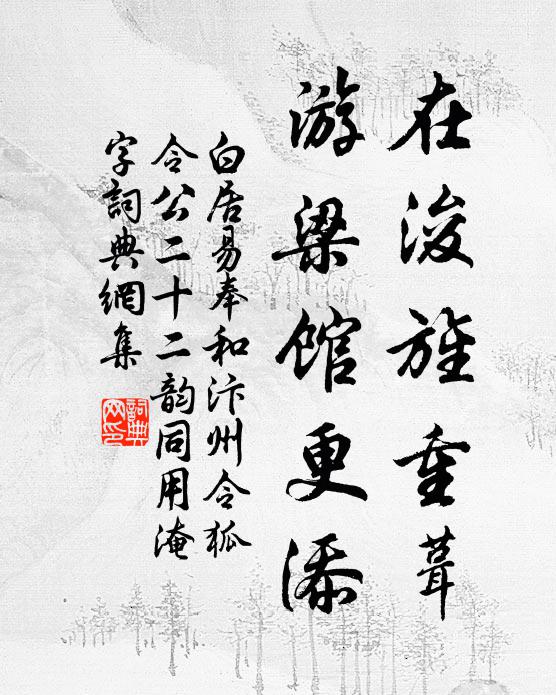 在浚旌重葺
游梁馆更添
白居易奉和汴州令狐
令公二十二韵同用淹
字詞典網集
詞典
网印